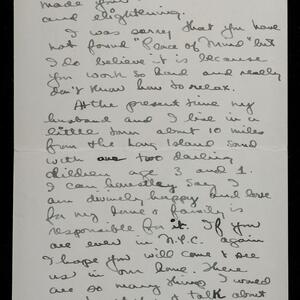 made your
and elightening.
I was sorry that you have
not found "Peace of Mind" but
I do believe it is because
you work so hard and really
don't know how to relax.
At the present time my
husband and I live in a
little town about 10 miles
from the Long Island Sound
with our two darling
children age 3 and 1.
I can honestley say I
am divinely happy and love
for my home & family is
responsible for it. If you
are ever in N.Y.C. again
I hope you will come & see
us in our home. There
are so many things I would
talk about